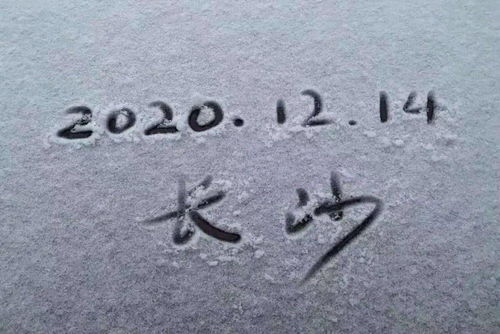 2020.12.14
长沙